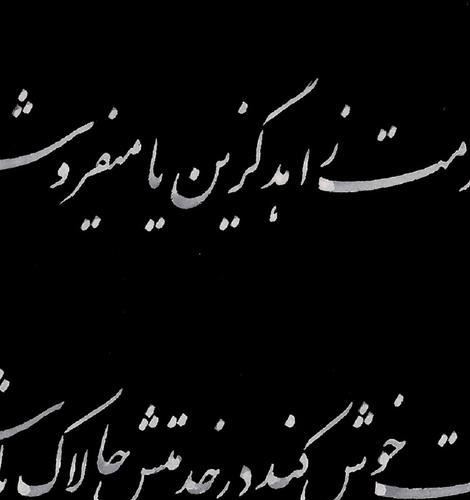 زاهد گزین یا میفروش
خوش کند در خدمتش چالاک